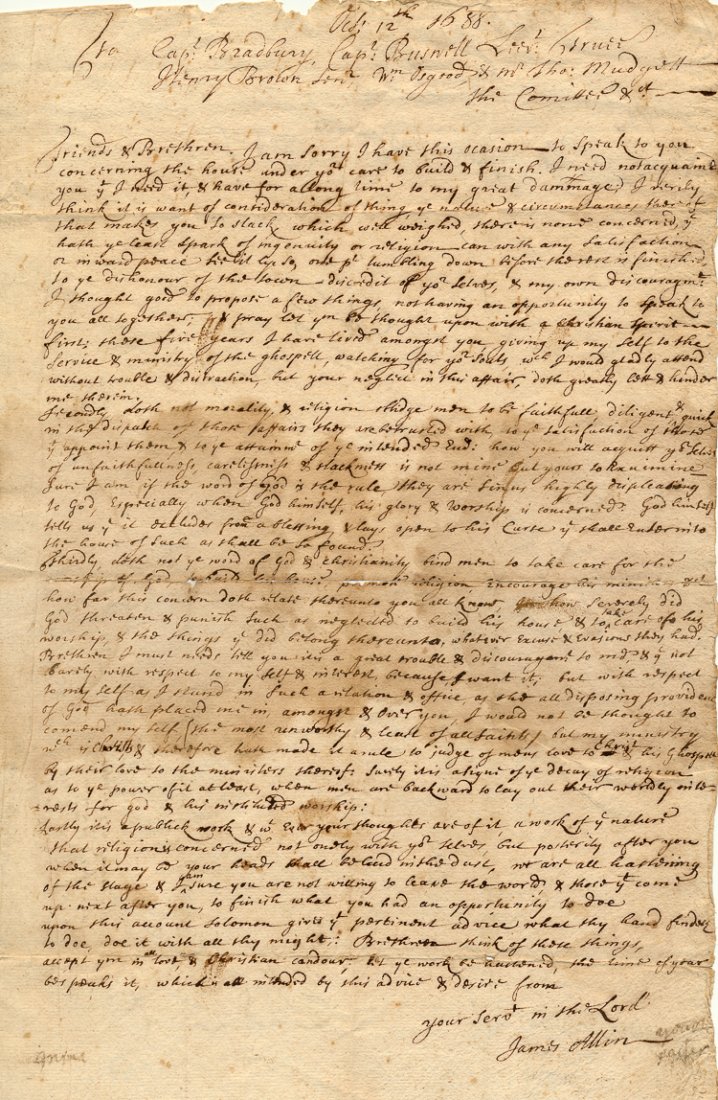 Oct: 12th 1688.
To Capt. Bradbury, Capt. Busnell Leevt.
Henry Brown Senr. Wm Osgood & Mr Tho: Mudgett
the Comittee &ct
Friends & Brethren. I am Sorry I have this ocasion to Speak to you
concerning the house under yor care to build & finish. I need not acquaint
you yt I need it, & have for a long time to my great dammage I verily
think it is want of consideration of thing, ye nature & circumstances thereof
that makes you So slack, which well weighed, there is none concerned, yt
hath ye least spark of ingenuity or religion can with any Satisfaction
or inward peace let it ly So, one pt tumbling down before the rest is finished
to ye dishonour of the town discredit of yor selves, & my own discouragmt
I thought good to propose a few things, not having an opportunity to Speak to
you all together, & pray let ym be thought upon with a Christian Spirit
first: these five years I have lived amongst you giving up my Self to the
Service & ministry of the ghospell, watching for yor Souls wch I would gladly attend
without trouble & distraction, but your neglect in this affair, doth greatly lett & hinder
me therein.
Secondly doth not morality, & religion oblidge men to be faithfull, diligent & quick
in the dispatch of those affairs they are betrusted with to ye satisfaction of those
yt appoint them & to ye attainmt of ye intended End: how you will acquitt yor Selves
of unfaithfullness, carelisness & slackness is not mine but yours to Examine
Sure I am if the word of God is the rule, they are Sinns highly displeasing
to God, Especially when God himself, his glory & Worship is concerned. God himself
tells us yt it excludes from a blessing & lays open to his Curse yt shall Enter into
the house of Such as shall be So found.
Thirdly, doth not ye word of God & Christianity bind men to take care for the
worship of God, to build his house promote religion Encourage his ministers &ct
how far this concern doth relate thereunto you all know, how Severely did
God threaten & punish Such as neglected to build his house & to take care of his
worship, & the things yt did belong thereunto, whatever Excuse & Evasions they had.
Brethren I must needs tell you it is a great trouble & discouragmt to me, & yt not
barely with respect to my Self & interest, because I want it; but with respect
to my Self as I stand in Such a relation & office, as the all disposing providence
of God hath placed me in, amongst & Over you, I would not be thought to
comend my self (the most unworthy & least of all saints) but my ministry
wch is Christs & therefore hath made it a rule to judge of mens love to Christ & his Ghospell
by their love to the ministers thereof: Surely it is a signe of ye decay of religion
as to ye power of it at least, when men are backward to lay out their worldly inte-
rests for God & his instituted worship:
Lastly it is a publick work & wt Ever your thoughts are of it a work of yt nature
that religion is concerned not onely with yor selves, but posterity after you
when it may be your heads shall be laid in the dust, we are all hastening
of the stage & I am sure you are not willing to leave the word, & those yt come
up next after you, to finish what you had an opportunity to doe
upon this account Solomon gives yt pertinent advice what thy hand findeth
to doe, doe it with all thy might: Brethren think of these things,
accept ym in love, & Christian candour, let ye work be hastened, the time of year
bespeaks it, which is all intended by this advice & desire from
your Servt in the Lord
James Allin